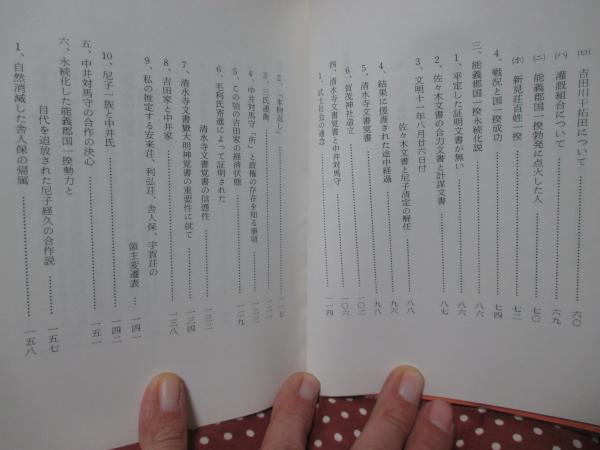 (ロ) 吉田川干拓田について……六〇
(ハ) 灌漑組合について……六九
(ニ) 能義郡国一揆勃発に点火した人……七〇
(ホ) 新見荘百姓一揆……七二
4、戦況と国一揆成功……七四
三、能義郡国一揆永続化説……八六
1、平定した証明文書が無い……八六
2、佐々木文書の合力文書と計謀文書……八七
3、文明十一年八月廿六日付
佐々木文書と尼子清定の解任……八八
4、結果に援護された途中経過……九六
5、清水寺文書覚書……九八
6、賀茂神社造立……一〇二
四、清水寺文書覚書と中井対馬守……一〇六
1、武士社会の通念……一一四
2、「本物返し」……一一七
3、三氏連衡……一二一
4、中井対馬守「所」と政権の存在を知る事項……一二三
5、この頃の吉田荘の経済状態……一二九
6、毛利氏寄進によって証明された
清水寺文書覚書の信憑性……一三二
7、清水寺文書嶽大明神覚書の重要性に就て……一三四
8、吉田家と中井家……一三八
9、私の推定する安来荘、利弘荘、舎人保、宇賀荘の
領主変遷表……一四一
10、尼子一族と中井氏……一四二
五、中井対馬守の合作の決心……一五一
六、永続化した能義郡国一揆勢力と
目代を追放された尼子経久の合作説……一五七
1、自然消滅した舎人保の帰属……一五八